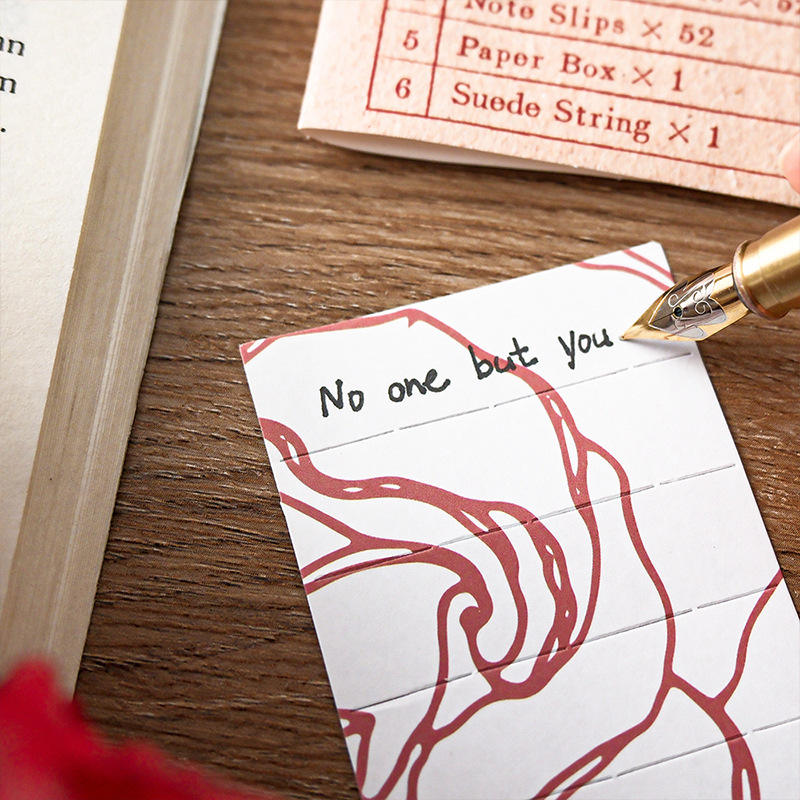 Note Slips × 52
5 Paper Box × 1
6 Suede String × 1
No one but you